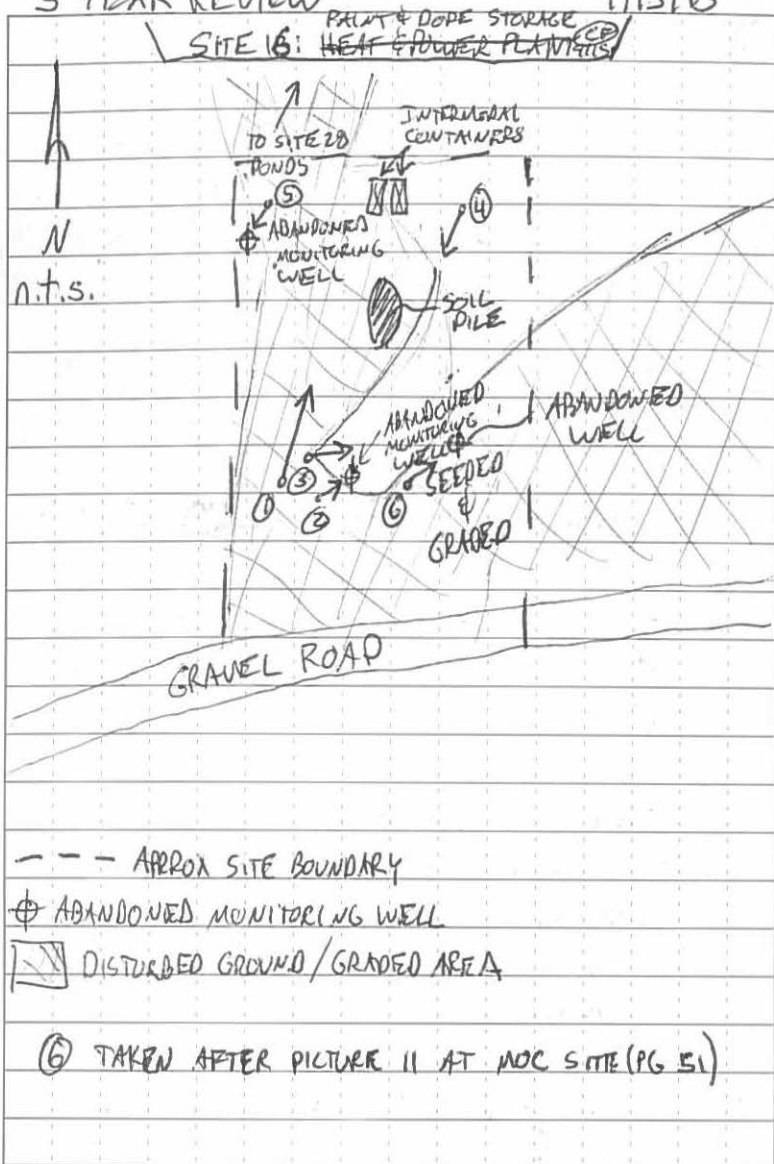 5 YEAR REVIEW
PAINT & DOPE STORAGE
SITE 16: HEAT & POWER PLANT
TO SITE 28
PONDS
INTERMODAL
CONTAINERS
N
n.t.s.
⑤
④
ABANDONED
MONITORING
WELL
SOIL
PILE
ABANDONED
MONITORING
WELL
ABANDONED
WELL
①
③
②
⑥
SEEDED
&
GRADED
GRAVEL ROAD
--- APPROX SITE BOUNDARY
ABANDONED MONITORING WELL
DISTURBED GROUND / GRADED AREA
⑥ TAKEN AFTER PICTURE 11 AT MOC SITE (PG 51)